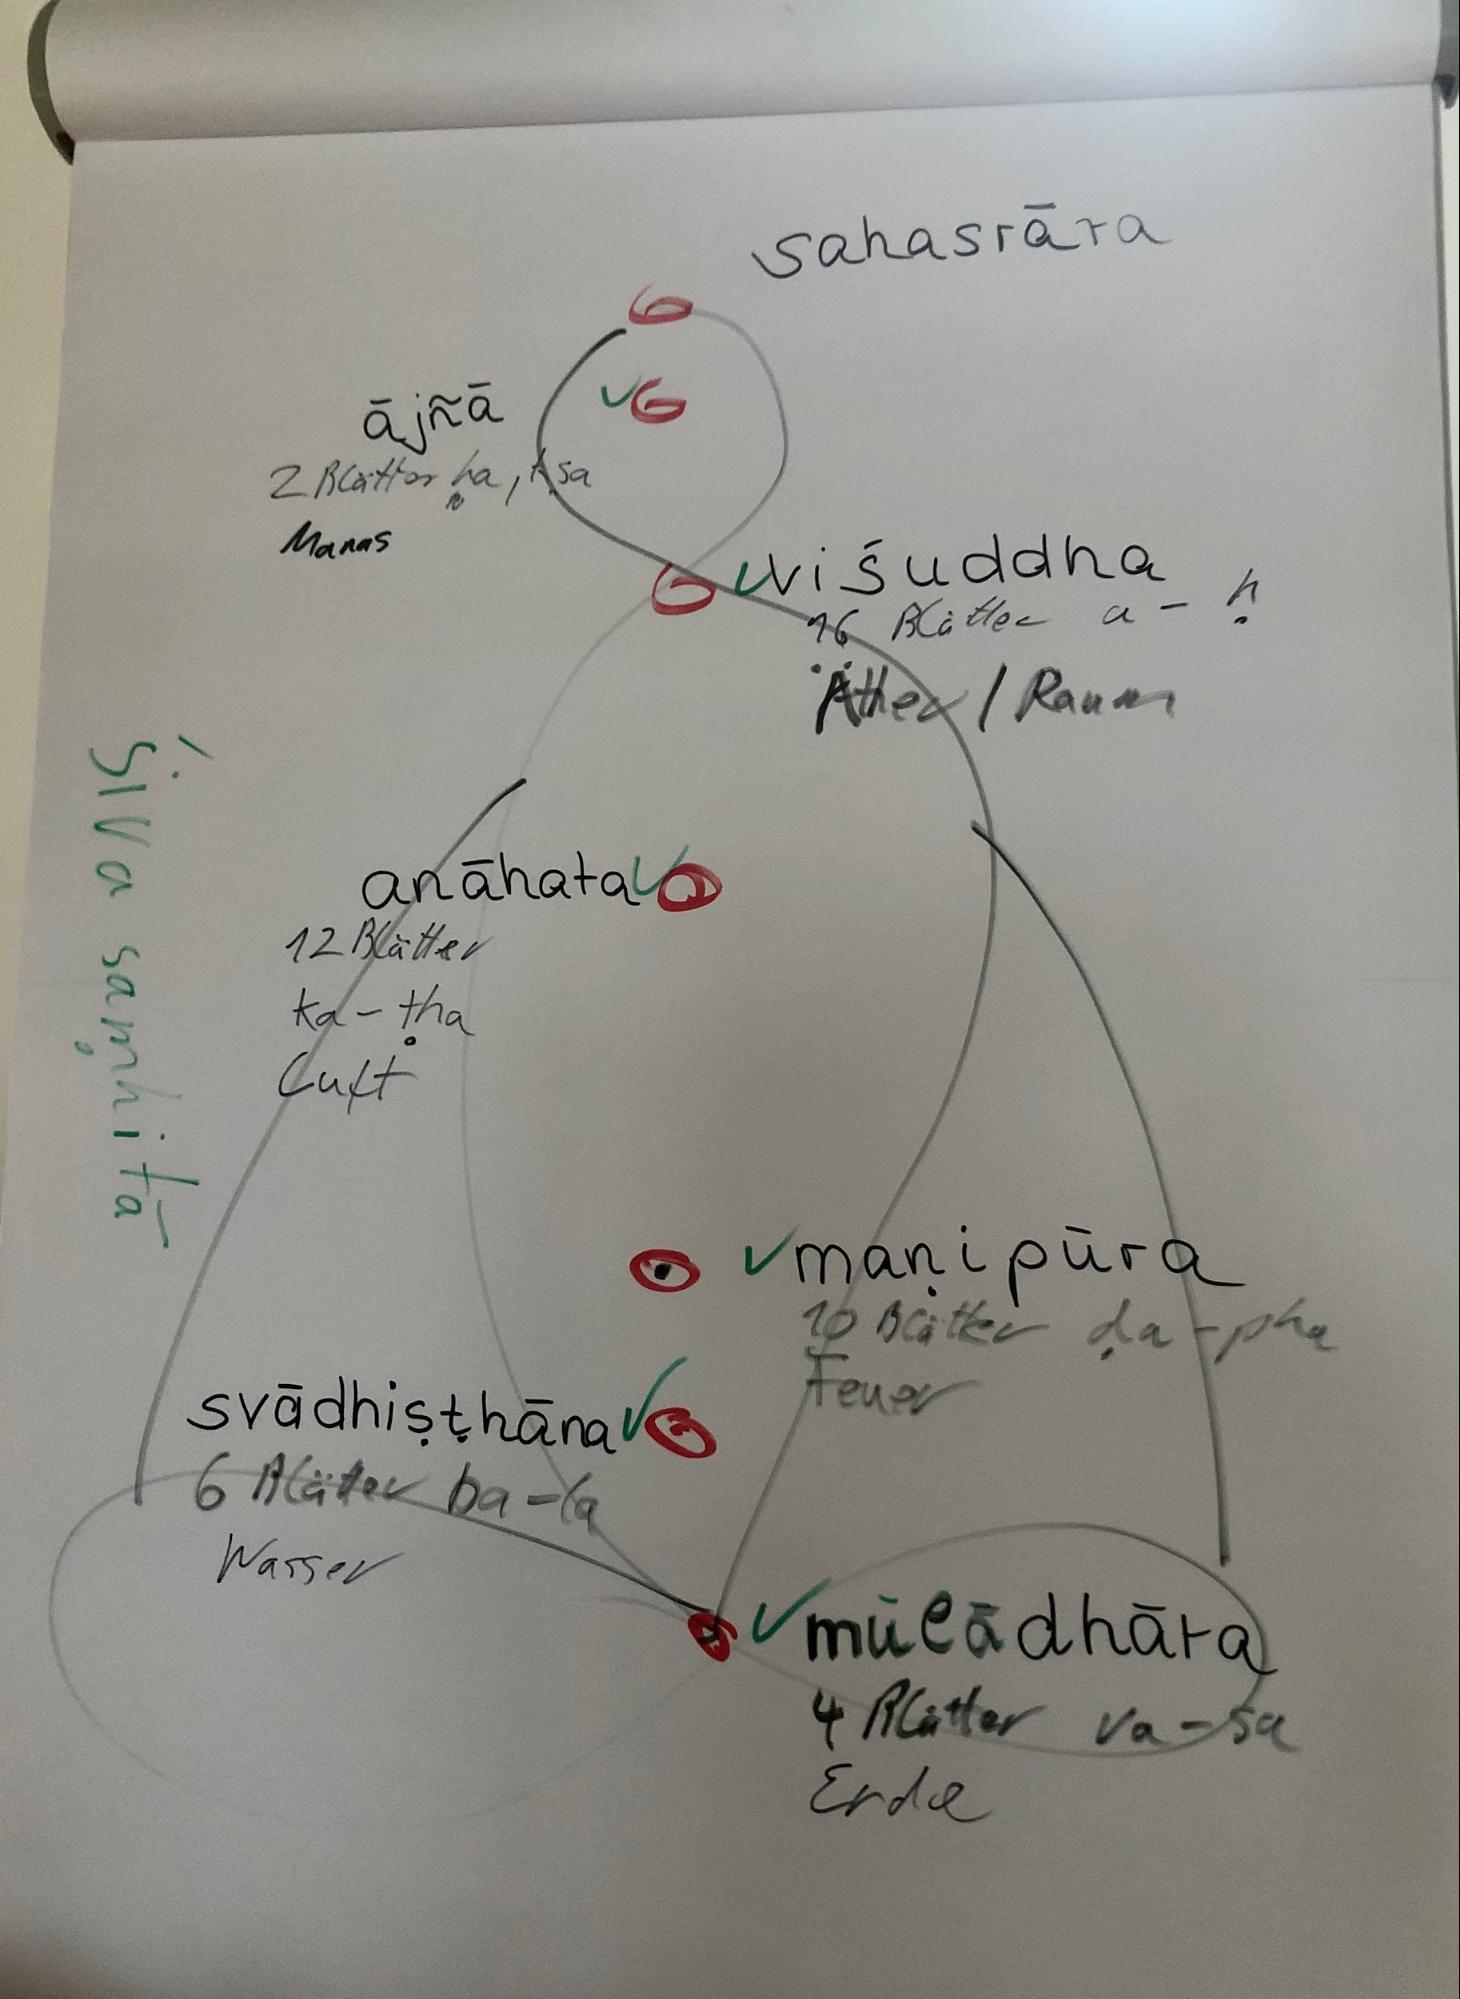 sahasrāra
ājñā
2 Blätter ha, kṣa
Manas
viśuddha
16 Blätter a - ḥ
Äther / Raum
Śiva saṃhitā
anāhata
12 Blätter
ka - ṭha
Luft
maṇipūra
10 Blätter ḍa - pha
Feuer
svādhiṣṭhāna
6 Blätter ba - la
Wasser
mūlādhāra
4 Blätter va - sa
Erde